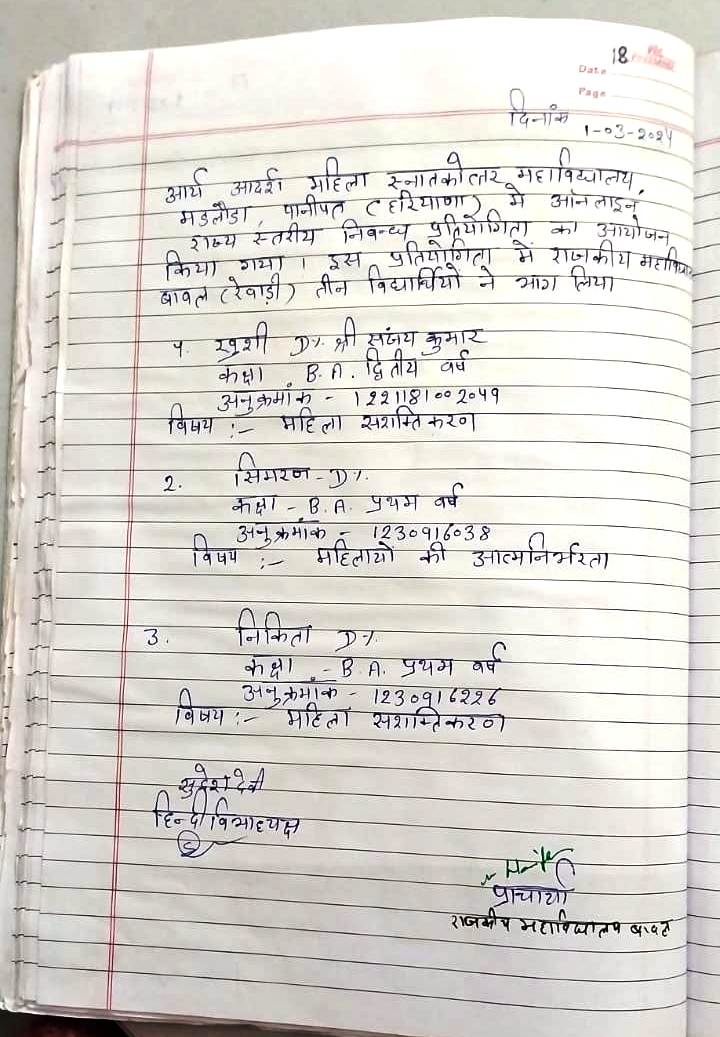 18
Date
Page
दिनांक
1-03-2024
आर्य आदर्श महिला स्नातकोत्तर महाविद्यालय,
मडलौडा, पानीपत (हरियाणा) में ऑनलाइन,
राज्य स्तरीय निबन्ध प्रतियोगिता का आयोजन
किया गया। इस प्रतियोगिता में राजकीय महाविद्यालय
बावल (रेवाड़ी) तीन विद्यार्थियों ने भाग लिया
1. खुशी D/. श्री संजय कुमार
कक्षा B.A. द्वितीय वर्ष
अनुक्रमांक - 1221181002049
विषय :- महिला सशक्तिकरण
2. सिमरन - D/.
कक्षा - B.A. प्रथम वर्ष
अनुक्रमांक - 1230916038
विषय :- महिलायों की आत्मनिर्भरता
3. निकिता D/.
कक्षा - B.A. प्रथम वर्ष
अनुक्रमांक - 1230916226
विषय :- महिला सशक्तिकरण
सुदेश देवी
हिन्दी विभाध्यक्ष
प्राचार्या
राजकीय महाविद्यालय बावल